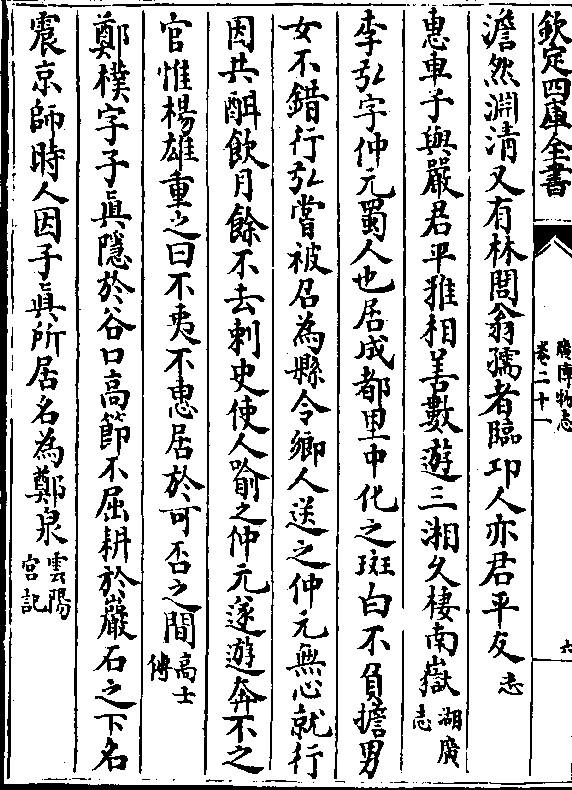 欽定四庫全書
廣博物志
卷二十一
六
澹然淵清又有林閭翁孺者臨邛人亦君平友志
惠車子與嚴君平雅相善數遊三湘久棲南嶽湖廣志
李弘字仲元蜀人也居成都里中化之斑白不負擔男
女不錯行弘嘗被召為縣令鄉人送之仲元無心就行
因共酣飲月餘不去刺史使人喻之仲元遂遊奔不之
官惟楊雄重之曰不夷不惠居於可否之間高士傳
鄭樸字子眞隱於谷口高節不屈耕於巖石之下名
震京師時人因子眞所居名為鄭泉雲陽宮記